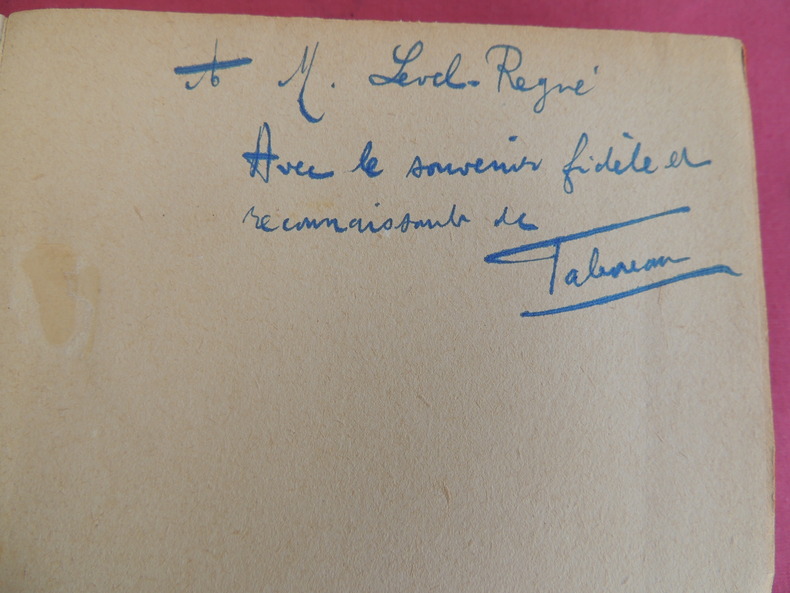 A M. Level-Regné
Avec le souvenir fidèle et
reconnaissant de
Taboreau